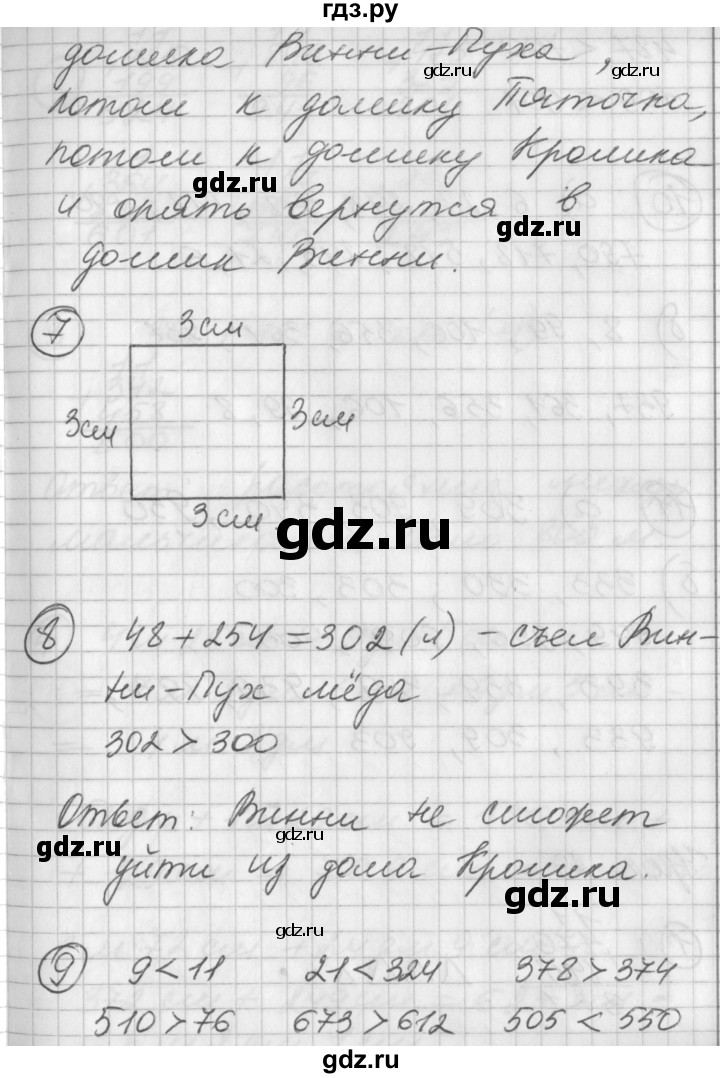 гдз.ру
домика Винни-Пуха,
потом к домику Пяточка,
потом к домику Кролика
и опять вернутся в
домик Винни.
7
3см
3см
3см
3см.
8 48+254=302(л) - съел Вин-
ни-Пух мёда
302>300
Ответ: Винни не сможет
уйти из дома Кролика.
9 9<11 21<324 378>374
510>76 673>612 505<550
gdz.ru
gdz.ru
gdz.ru
gdz.ru
gdz.ru
gdz.ru
gdz.ru
gdz.ru
gdz.ru
gdz.ru
gdz.ru